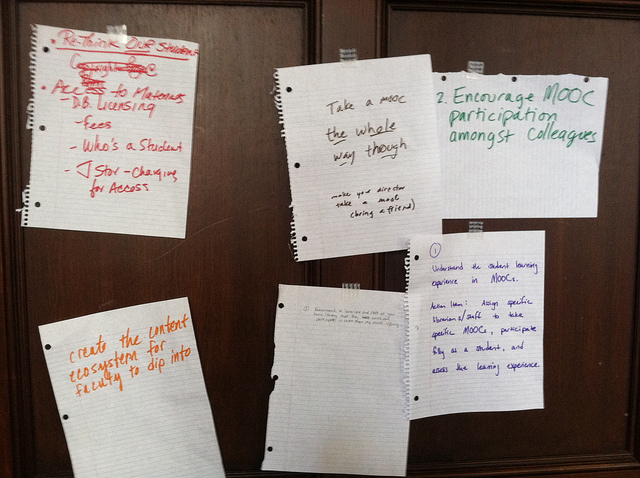 Re-Think Our Students
• Access to Materials
- D.B. Licensing
- fees
- Who's a Student
- JStor - Charging
for Access
Take a MOOC
the whole
way though
make your director
take a mooc
(bring a friend)
2. Encourage MOOC
participation
amongst Colleagues
create the content
ecosystem for
faculty to dip into
1
Understand the student learning
experience in MOOCs.
Action Item: Assign specific
librarians/staff to take
specific MOOCs, participate
fully as a student, and
assess the learning experience.